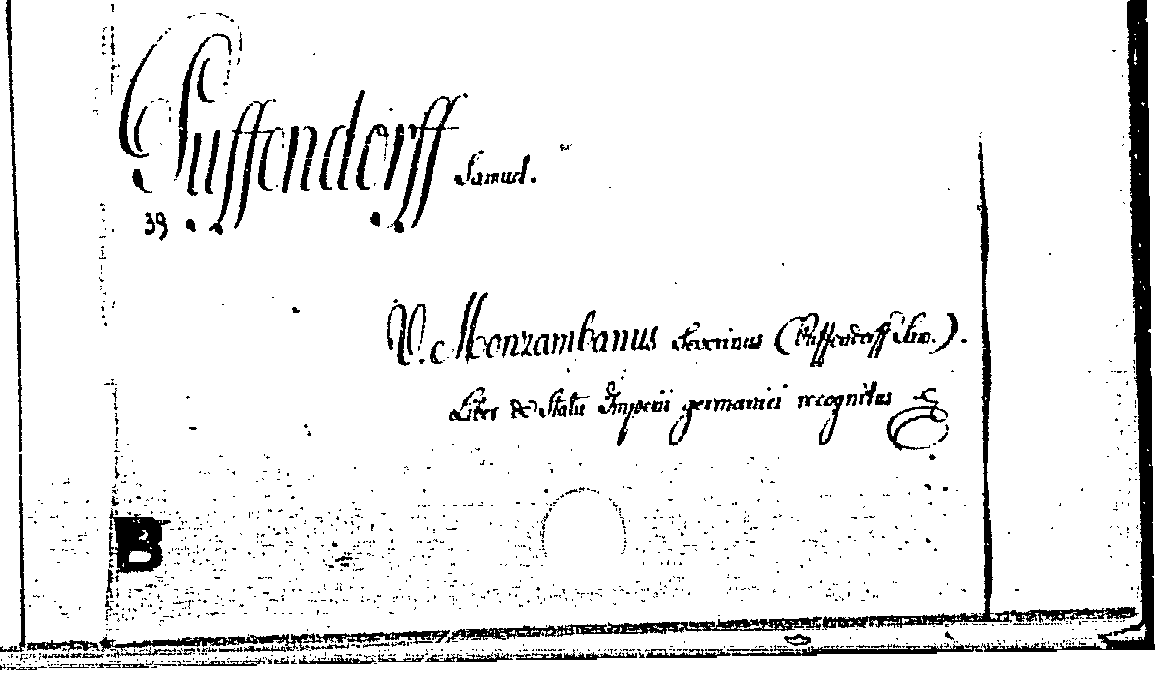 Puffendorff Samuel.
39
V. Monzambanus Severinus (Puffendorff Sam.).
Liber de Statu Imperii germanici recognitus
B